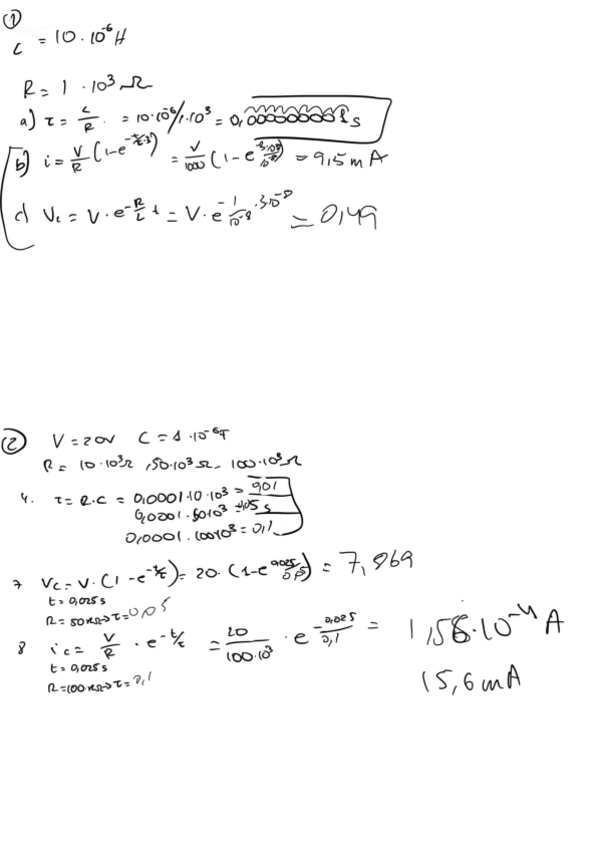 ①
L = 10.10^-6 H
R = 1 · 10^3 Ω
a) τ = L/R = 10·10^-6/1·10^3 = 0,000000001 s
b) i = V/R (1-e^-t/τ) = V/1000 (1-e) = 9,5 mA
c) V_L = V · e^-R/L t = V · e^-1/10^-8 · 3·10^-8 = 0,49
② V = 20V C = 1 · 10^-6 F
R = 10·10^3 Ω, 50·10^3 Ω, 100·10^3 Ω
4. τ = R.C = 0,0001·10·10^3 = 0,01
0,0001.50·10^3 = 0,05 s
0,0001.100·10^3 = 0,1
7 Vc = V. (1-e^-t/τ) = 20. (1-e^0,025/0,05) = 7,869
t = 0,025 s
R = 50KΩ → τ = 0,05
8 ic = V/R · e^-t/τ = 20/100·10^3 · e^-0,025/0,1 = 1,56·10^-4 A
t = 0,025 s
R = 100KΩ → τ = 0,1
15,6 mA